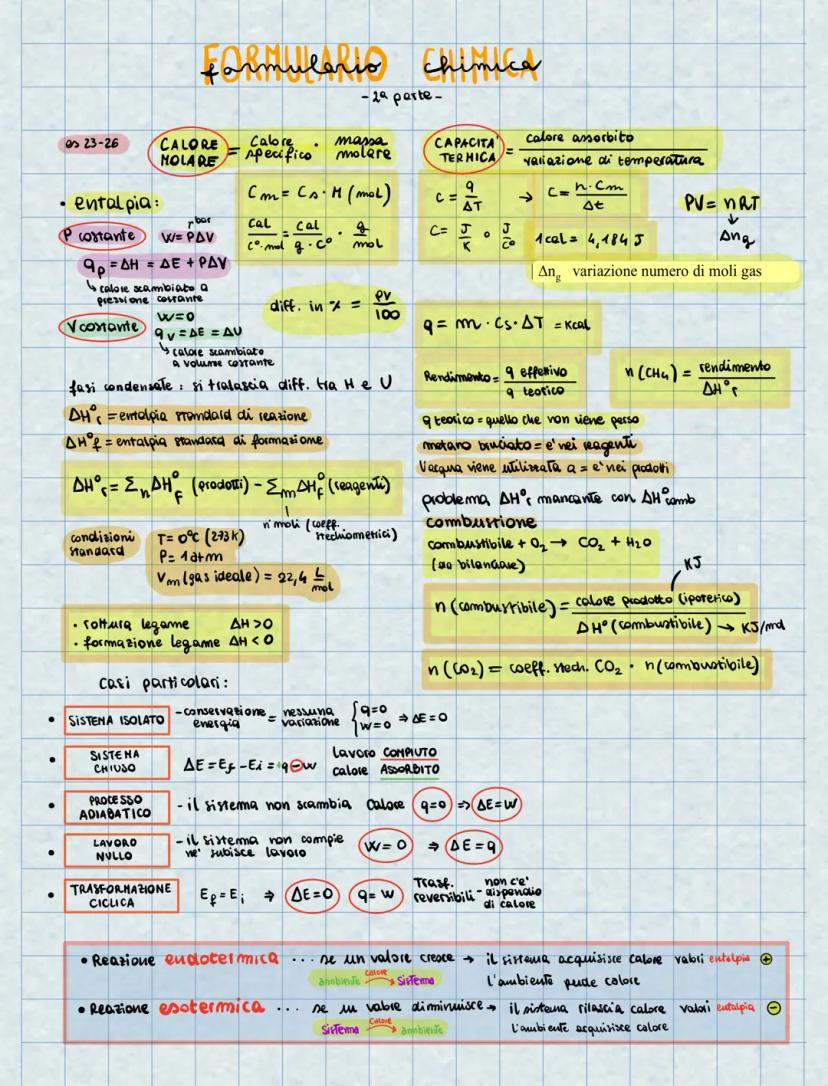 FORMULARIO CHIMICA
formulario chimica
-2ª parte-
es 23-26
CALORE MOLARE = Calore specifico · massa molare
Cm = Cs · M (mol)
Cal / C°·mol = Cal / g·C° · g / mol
CAPACITA' TERMICA = calore assorbito / variazione di temperatura
C = q / ΔT → C = n·Cm / Δt
C = J / K o J / C°
1cal = 4,184 J
PV = nRT
↓
Δng
Δng variazione numero di moli gas
• entalpia:
P costante W = PΔV
bar
qp = ΔH = ΔE + PΔV
↳ calore scambiato a
pressione costante
V costante W=0
qv = ΔE = ΔU
↳ calore scambiato
a volume costante
diff. in % = PV / 100
fasi condensate : si tralascia diff. tra H e U
ΔH°r = entalpia standard di reazione
ΔH°f = entalpia standard di formazione
ΔH°r = Σn ΔH°f (prodotti) − Σm ΔH°f (reagenti)
n° moli (coeff.
stechiometrici)
condizioni standard
T= 0°C (273K)
P= 1 atm
Vm (gas ideale) = 22,4 L / mol
• rottura legame ΔH >0
• formazione legame ΔH < 0
q = m · Cs · ΔT = Kcal
Rendimento = q effettivo / q teorico
n (CH4) = rendimento / ΔH°r
q teorico = quello che non viene perso
metano bruciato = e' nei reagenti
l'acqua viene utilizzata a = e' nei prodotti
problema ΔH°r mancante con ΔH°comb
combustione
combustibile + O2 → CO2 + H2O
(da bilanciare)
KJ
n (combustibile) = calore prodotto (ipotetico) / ΔH° (combustibile) → KJ/mol
n (CO2) = coeff. stech. CO2 · n (combustibile)
casi particolari:
• SISTEMA ISOLATO -conservazione energia = nessuna variazione { q=0 W=0 ⇒ ΔE=0
• SISTEMA CHIUSO ΔE = Ef - Ei = +q - w lavoro COMPIUTO
calore ASSORBITO
• PROCESSO ADIABATICO - il sistema non scambia calore q=0 ⇒ ΔE=W
• LAVORO NULLO - il sistema non compie
ne' subisce lavoro W = 0 ⇒ ΔE = q
• TRASFORMAZIONE CICLICA Ef = Ei ⇒ ΔE=0 q= W Trasf. reversibili - non c'e' dispendio di calore
• Reazione endotermica ... se un valore cresce → il sistema acquisisce calore valori entalpia +
ambiente calore → Sistema l'ambiente perde calore
• Reazione esotermica ... se un valore diminuisce → il sistema rilascia calore valori entalpia −
Sistema calore → ambiente l'ambiente acquisisce calore